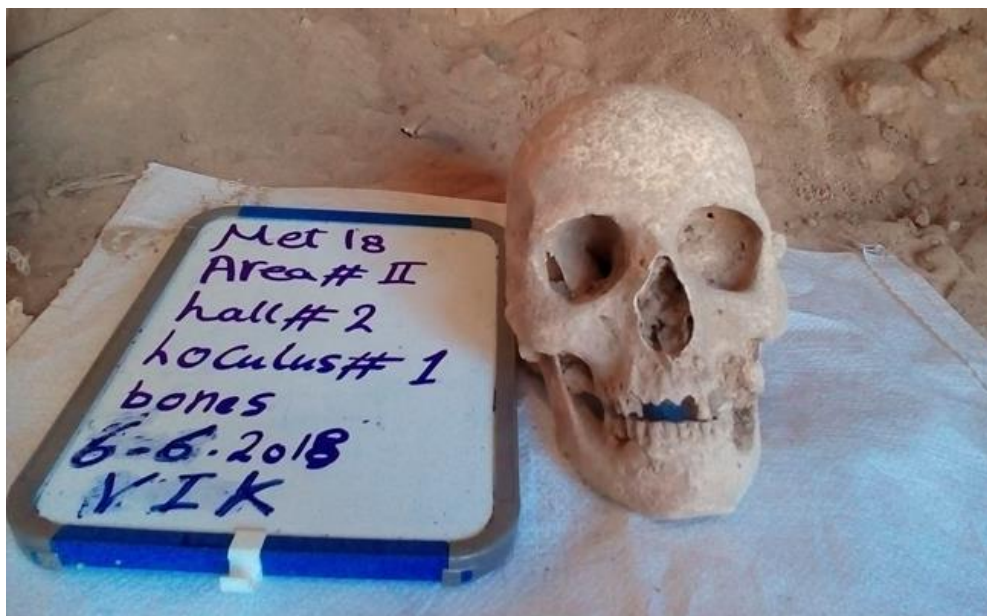 Met 18
Area # II
hall # 2
Loculus # 1
bones
6-6.2018
VIK